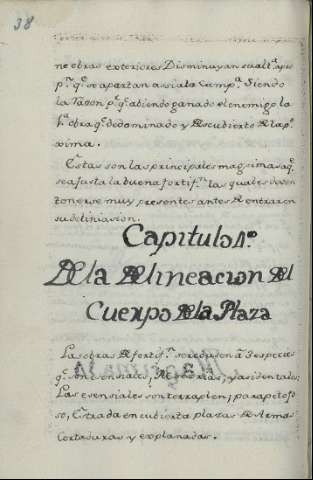 38
ne obras exteriores Disminuyan su alt.ª a pro
p.n q.e se apartan assia la Camp.ª Siendo
la Razon p.r q.e abiendo ganado el enemigo la
1.ª obra q.de dominado y descubierto de la p.ª
xima.
Estas son las principales maxsimas a q.e
se ajusta la buena fortif.n las quales deven
tonerse muy presentes antes de entrar en
su delitniasion.
Capitulo 1º
De la Delineacion del
Cuerpo de la Plaza
Las obras de fortif.n se reducen á 3 espesies
q.e son esensiales, y asidentales;
Las esensiales son terraplen, parapeto fo
so, Estrada encubierta plazas de
Cortaduras y explanadas.